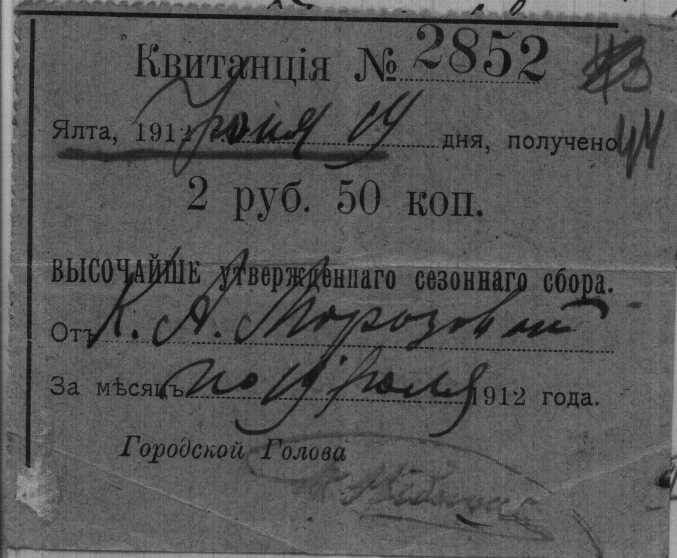 Квитанція № 2852
43
Ялта, 1912 Iюня 19 дня, получено
44
2 руб. 50 коп.
ВЫСОЧАЙШЕ утвержденнаго сезоннаго сбора.
Отъ К. А. Морозовой
За мѣсяцъ по 19 Iюля 1912 года.
Городской Голова